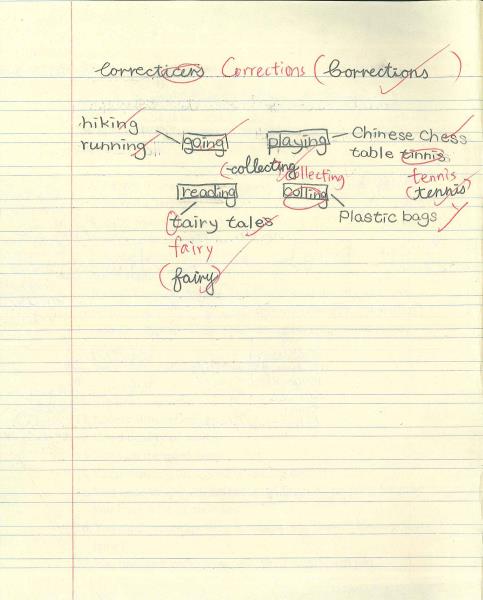 Correcticers Corrections (Corrections)
hiking
running going playing Chinese Chess
table tinnis
(collecting collecting tennis
reading colling (tennis)
tairy tales Plastic bags
fairy
(fairy)